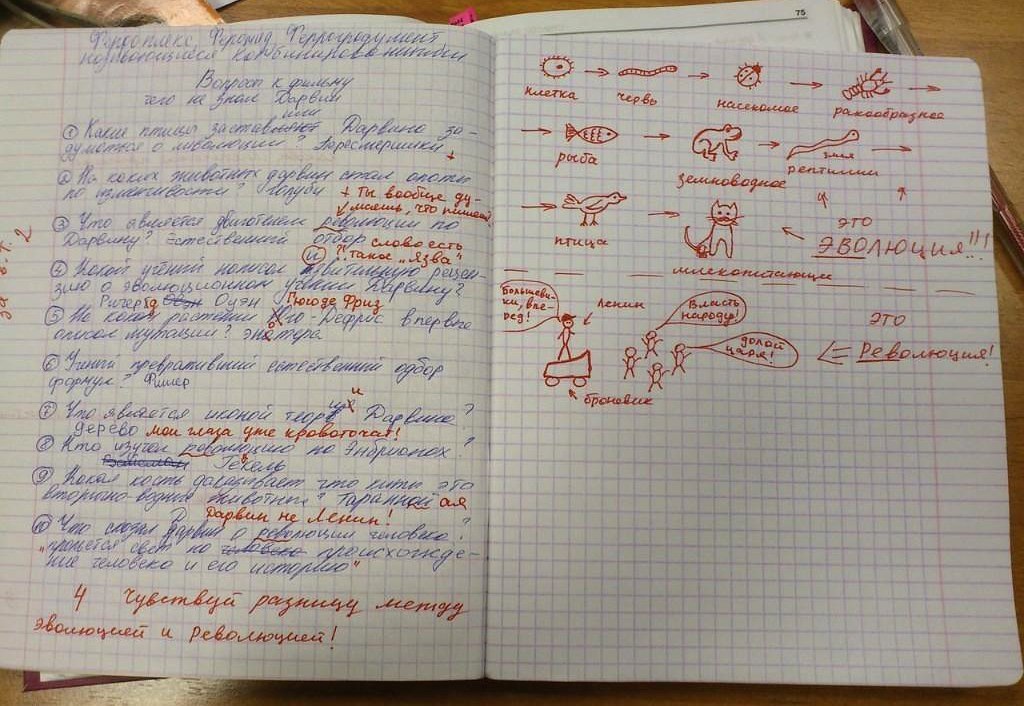 75
Вопросы к фильму
чего не знал Дарвин
① Какие птицы заставили Дарвина за-
думаться о революции? Пересмешники +
② На каких животных Дарвин ставил опыты
по изменчивости? Голуби +
ты вообще ду-
маешь, что пишешь
③ Что является двигателем революции по
Дарвину? Естественный отбор
слово есть
такое "Язва"
④ Какой учёный написал
рецен-
зию о эволюционном учении Дарвину?
Ричард Оуэн
Гюгоде Фриз
⑤ На каком растении Гго-Дефрис впервые
описал мутации? энотера
⑥ Учёный превративший естественный одбор
формул? Фишер
⑦ Что является иконой теории Дарвина?
дерево мои глаза уже кровоточат!
⑧ Кто изучал революцию по Эмбрионах?
Геккель
⑨ Какая кость доказывает что киты это
вторично-водные животные? Таранная
Дарвин не Ленин!
⑩ Что сказал Дарвин о революции человека?
"прольётся свет на происхожде-
ние человека и его историю"
4 Чувствуй разницу между
эволюцией и Революцией!
за в.т. 2
клетка червь насекомое ракообразное
рыба земноводное змея рептилии
птица
млекопитающие
это
ЭВОЛЮЦИЯ!!!
Большеви-
ки, впе-
рёд!
Ленин
Власть
народу!
долой
царя!
броневик
это
Революция!